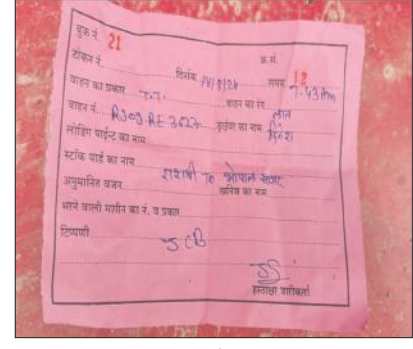 बुक नं. 21 क्र.सं. 12
टोकन नं. दिनांक 18/9/24 समय 7:43 Pm
वाहन का प्रकार T.T. वाहन का रंग लाल
वाहन नं. RJ09 RE 3627 ड्राईवर का नाम दिनेश
लोडिंग पाईन्ट का नाम
स्टॉक यार्ड का नाम राशमी TO भोपाल सागर
अनुमानित वजन खनिज का नाम
भरने वाली मशीन का नं. व प्रकार
टिप्पणी JCB
हस्ताक्षर जारीकर्ता